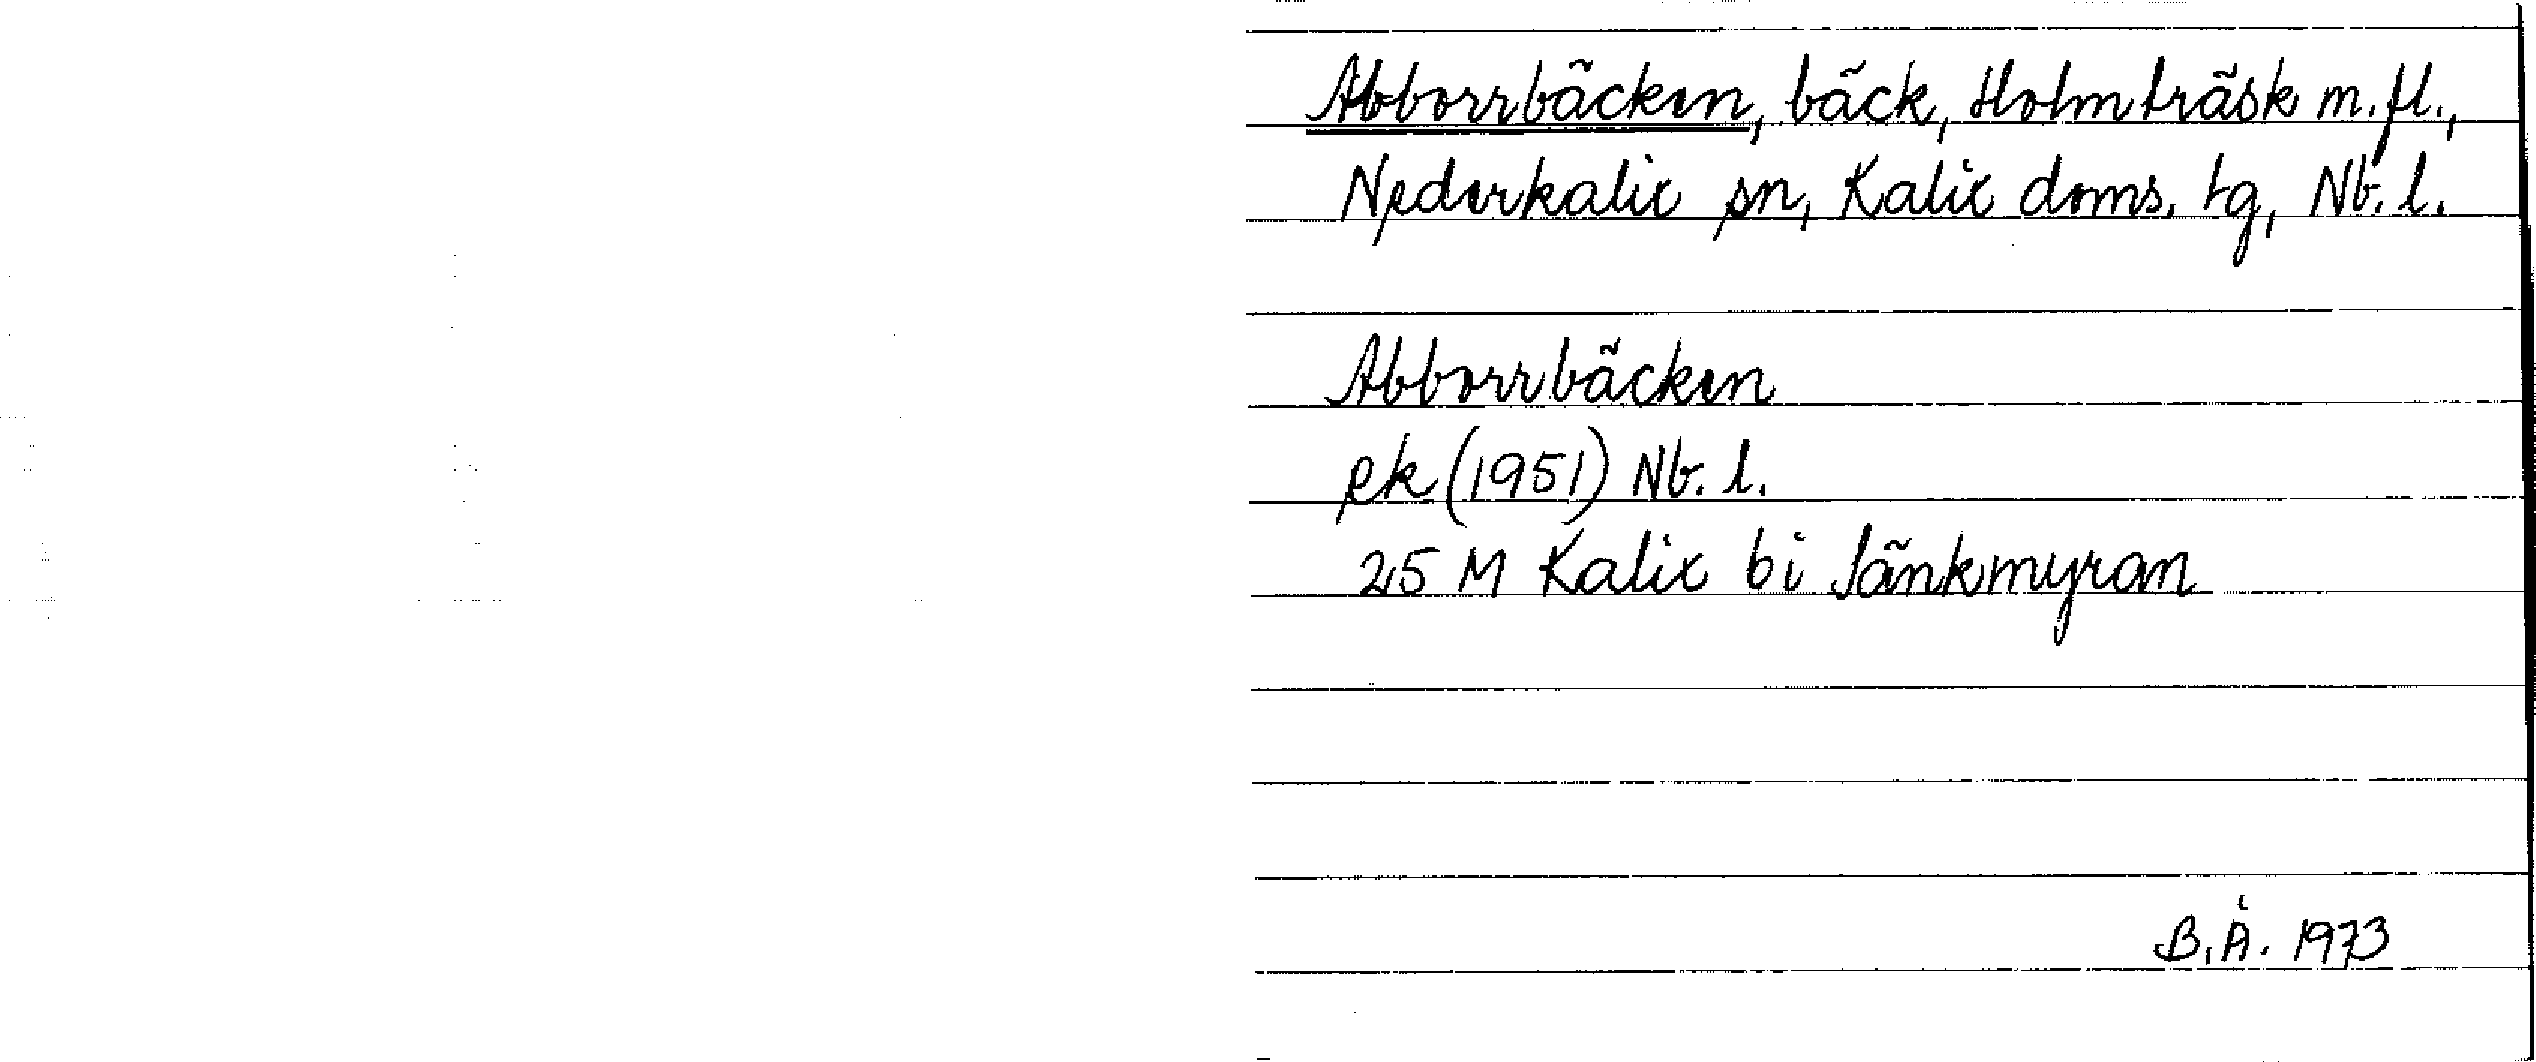 Abborrbäcken, bäck, Holmträsk m.fl.,
Nederkalix sn, Kalix doms. tg, Nb. l.
Abborrbäcken
ek (1951) Nb. l.
25 M Kalix bi Sänkmyran
B.Å. 1973